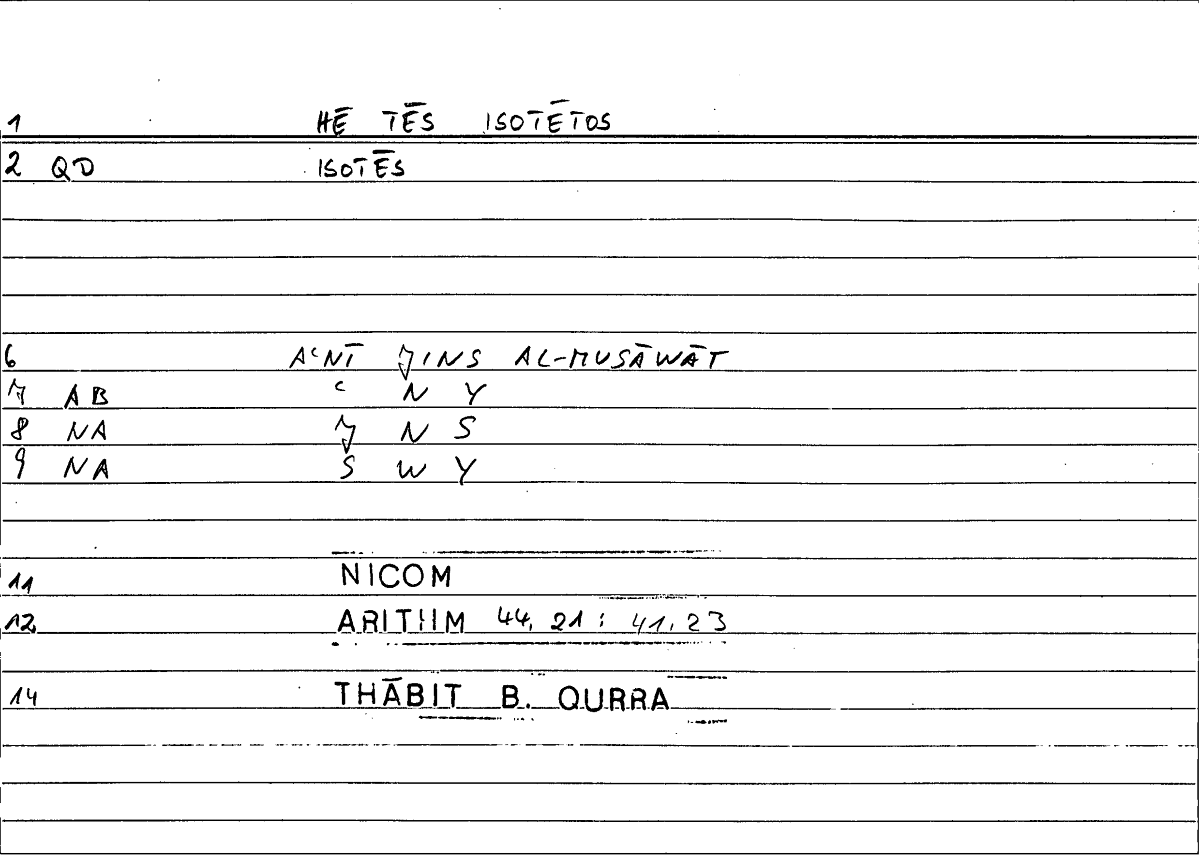 1 HĒ TĒS ISOTĒTOS
2 QD ISOTĒS
6 AʿNĪ J̌INS AL-MUSĀWĀT
7 AB ʿ N Y
8 NA J̌ N S
9 NA S W Y
11 NICOM
12 ARITHM 44,21 : 41,23
14 THĀBIT B. QURRA